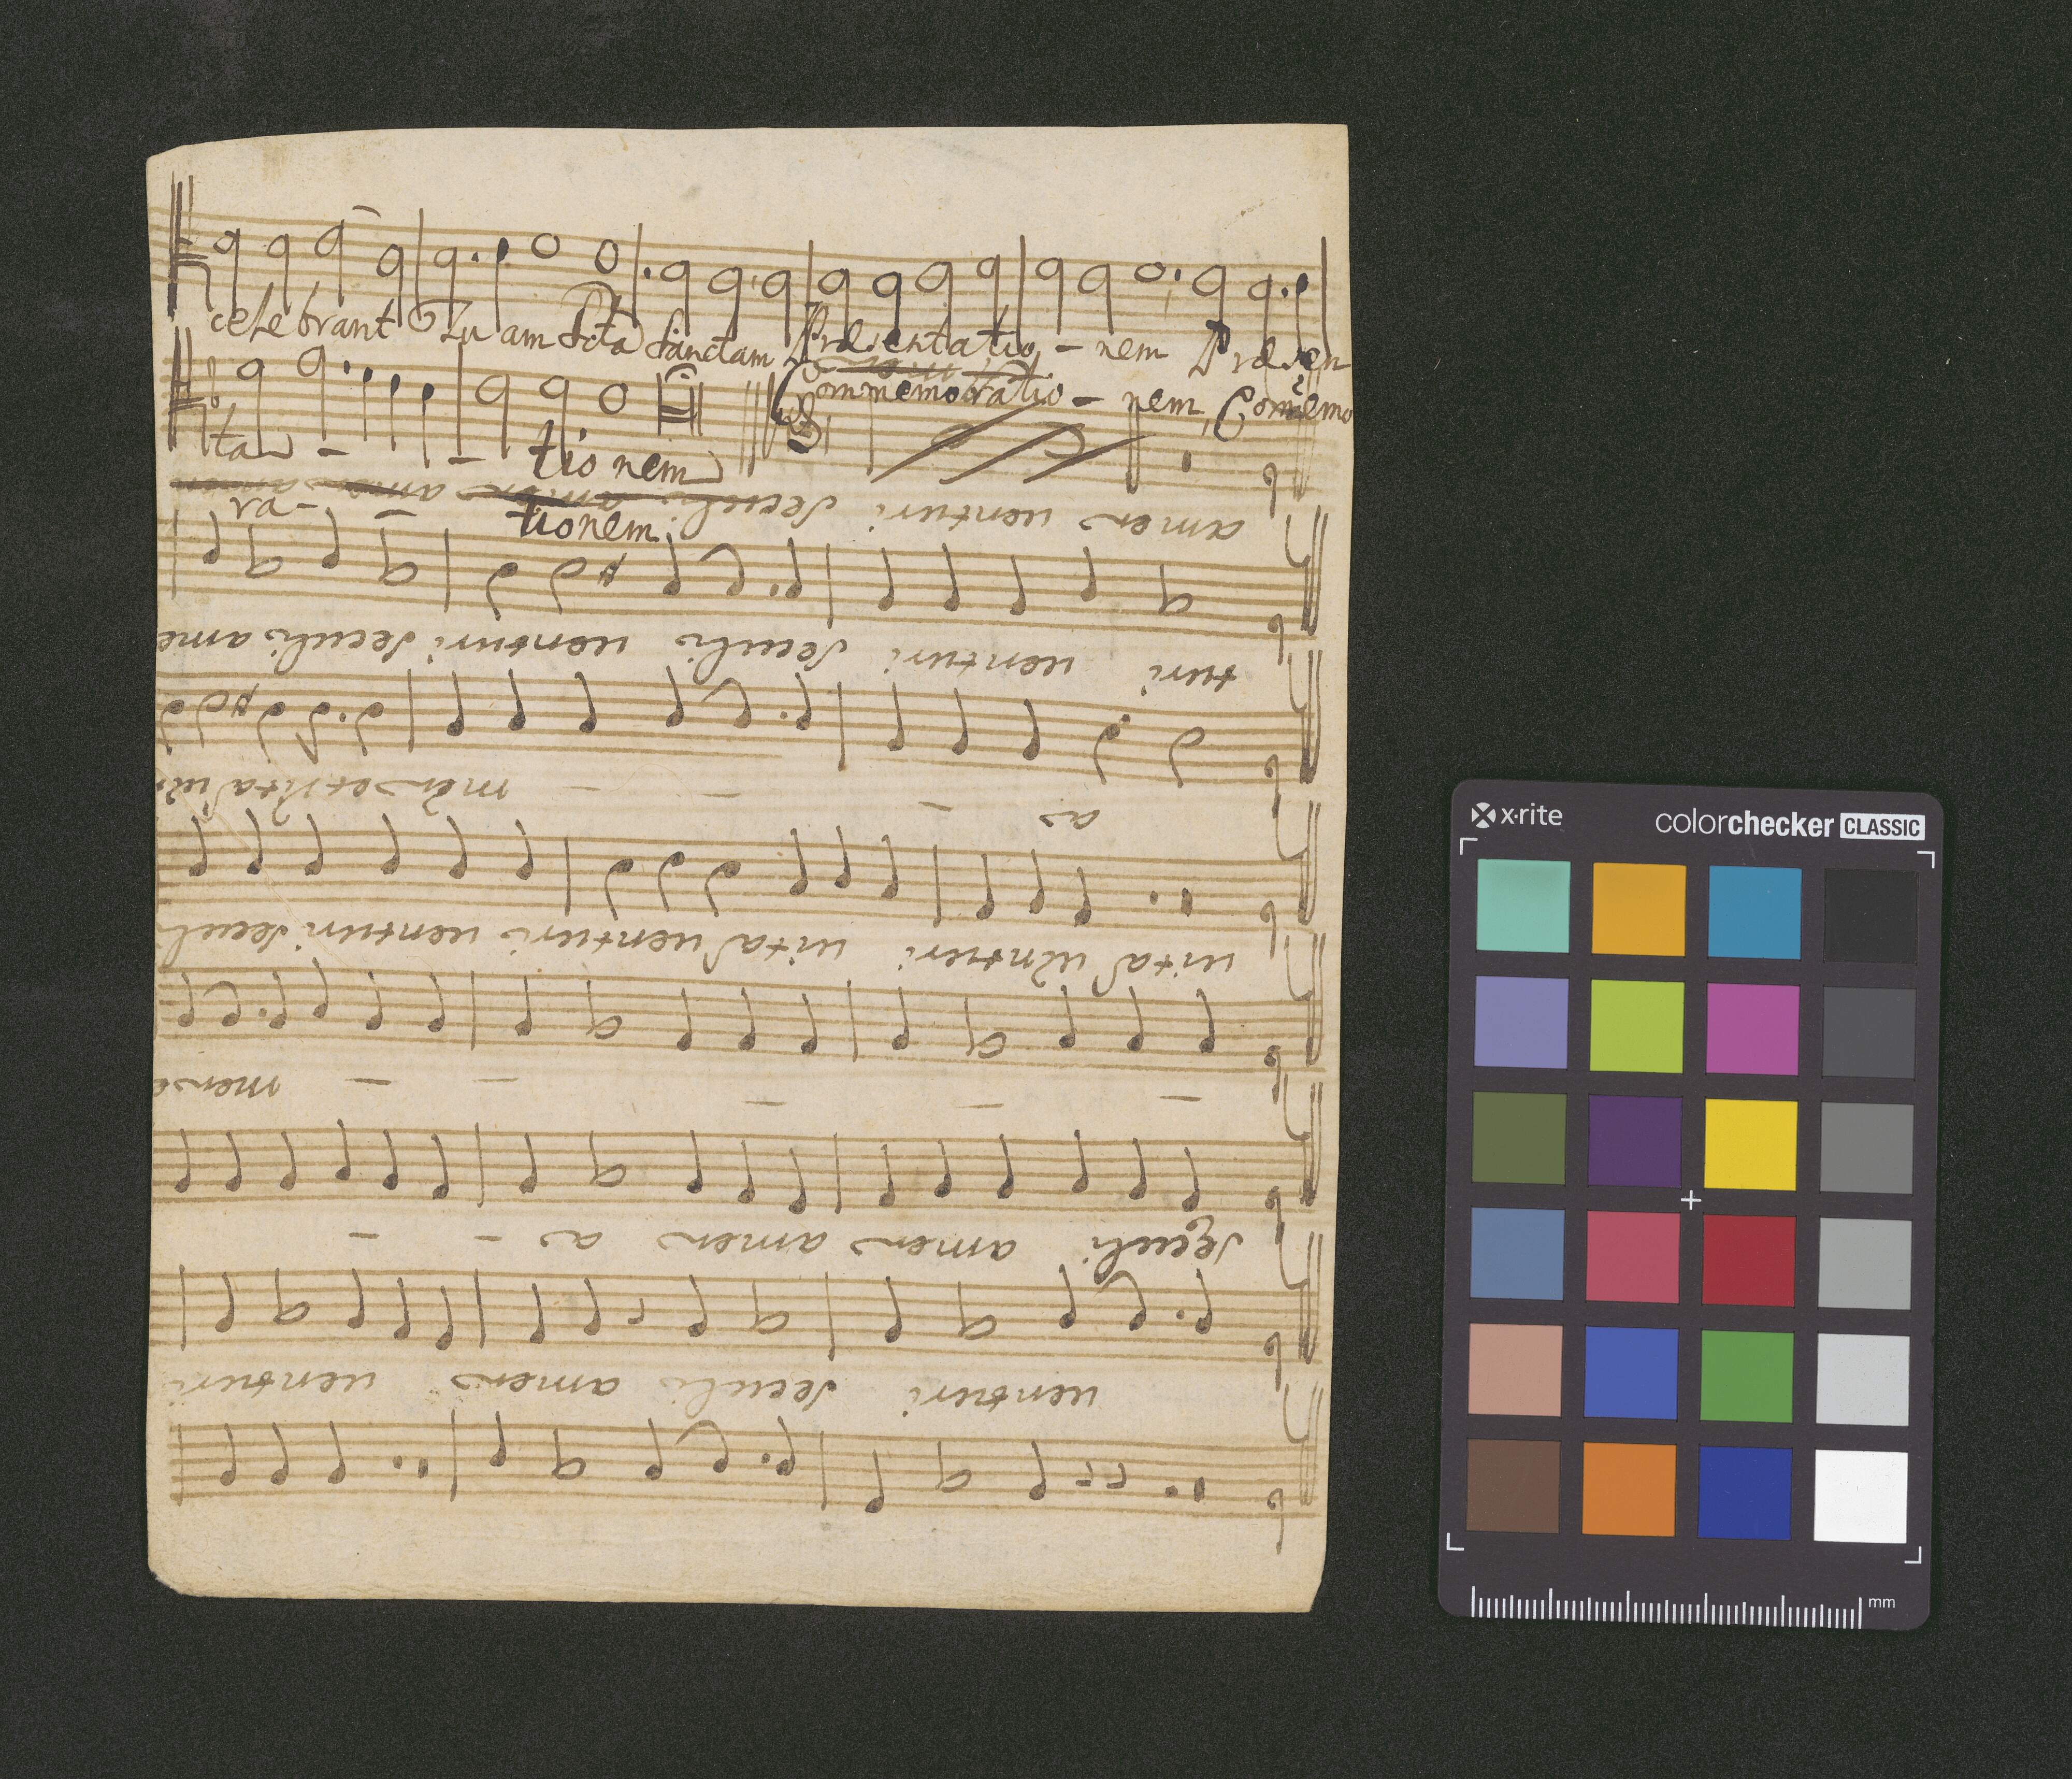 celebrant Tuam Scta Sanctam Præsentatio - nem Præsen
Commemoratio - nem, Comemo
ta - - tionem
ra - - tionem
amen uenturi seculi
turi uenturi seculi uenturi seculi ame
a - - - men et vita
vita uenturi vita uenturi uenturi secul
- - - - - men
seculi amen amen a - -
uenturi seculi amen uenturi
x·rite
colorchecker CLASSIC
mm